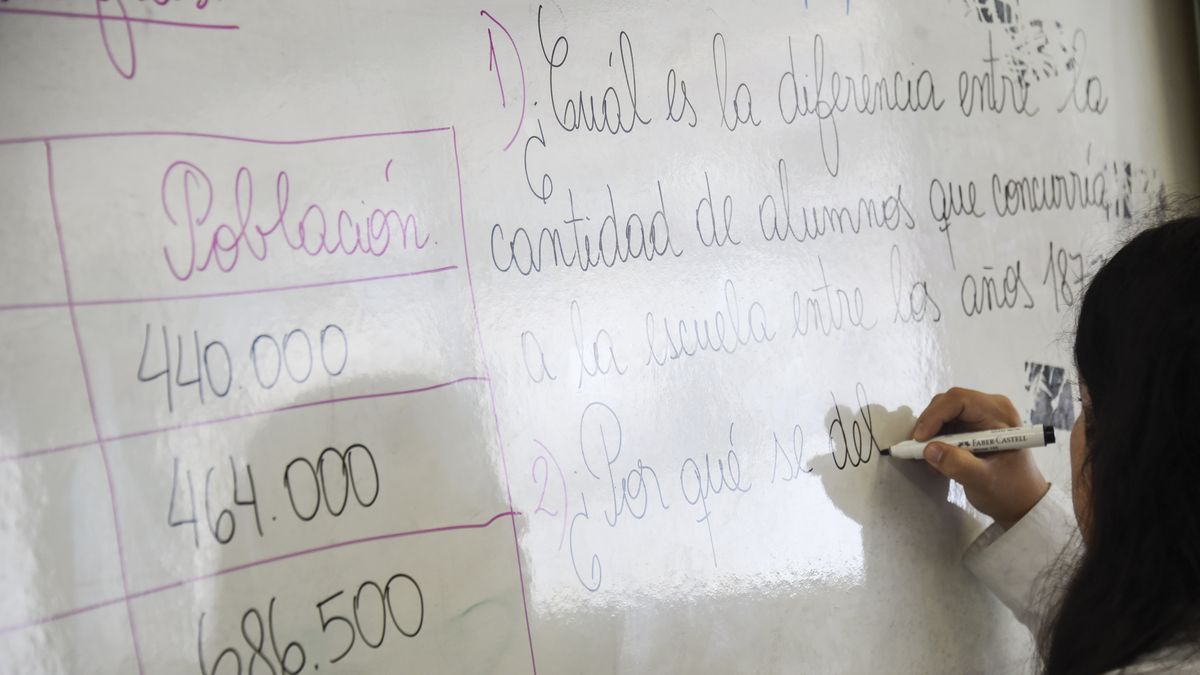 Población.
440.000
464.000
686.500
1) ¿Cuál es la diferencia entre la
cantidad de alumnos que concurría
a la escuela entre los años 187
2) ¿Por qué se del
FABER-CASTELL